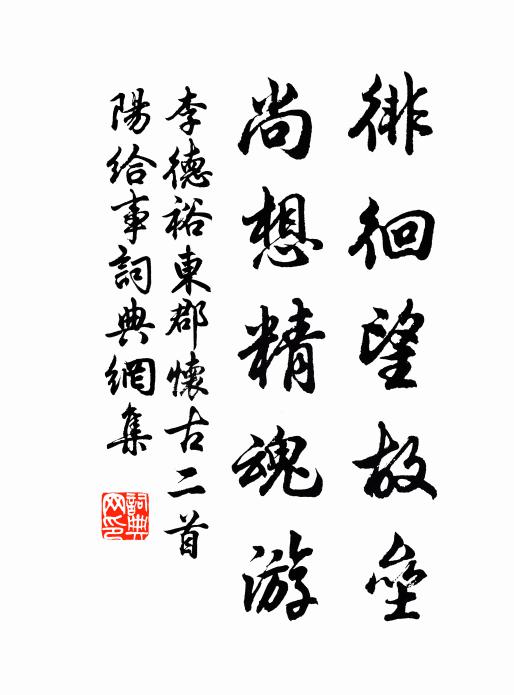 徘徊望故壘
尚想精魂游
李德裕東郡懷古二首
陽給事詞典網集
詞典网印